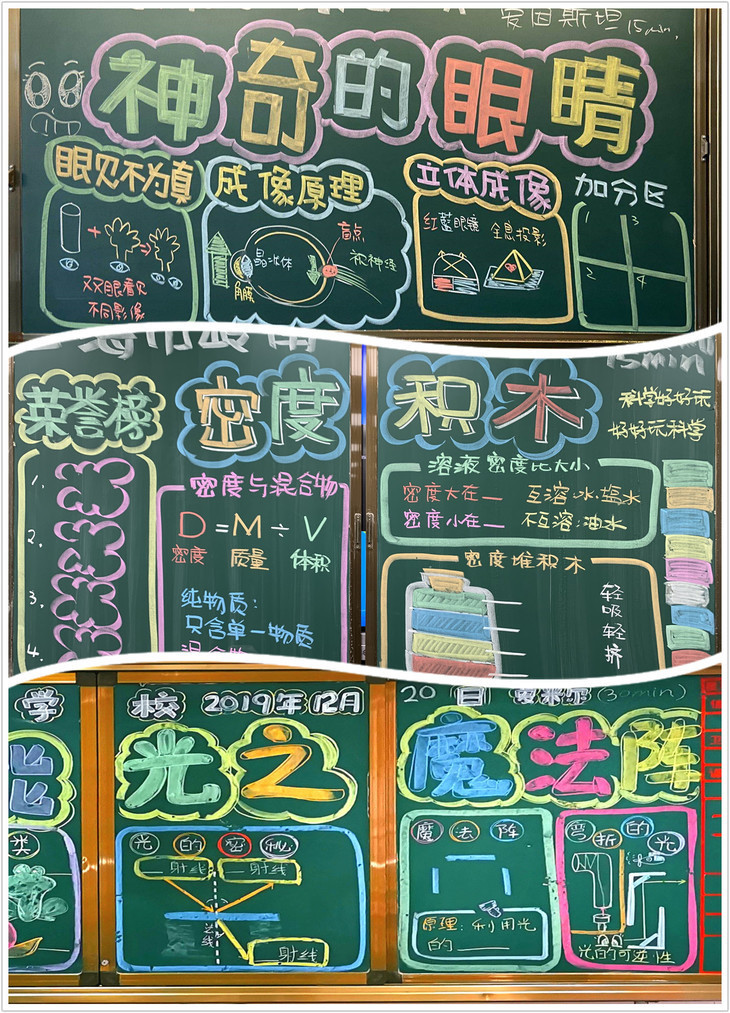 爱因斯坦 15min.
神奇的眼睛
眼见不为真
成像原理
立体成像
加分区
双眼看见
不同影像
晶状体
角膜
盲点
视神经
红蓝眼镜
全息投影
1
2
3
4
15min
荣誉榜
1.
2.
3.
4.
密度
密度与混合物
D=M÷V
密度 质量 体积
纯物质:
只含单一物质
混合物
积木
科学好好玩
好好玩科学
溶液密度比大小
密度大在__ 互溶:水.盐水
密度小在__ 不互溶:油水
密度堆积木
轻吸轻挤
学校 2019年12月20日
(30min)
类
光之魔法阵
光的密秘
__射线
__射线
法线
__射线
魔法阵
原理:利用光
的____
弯折的光
光的可逆性